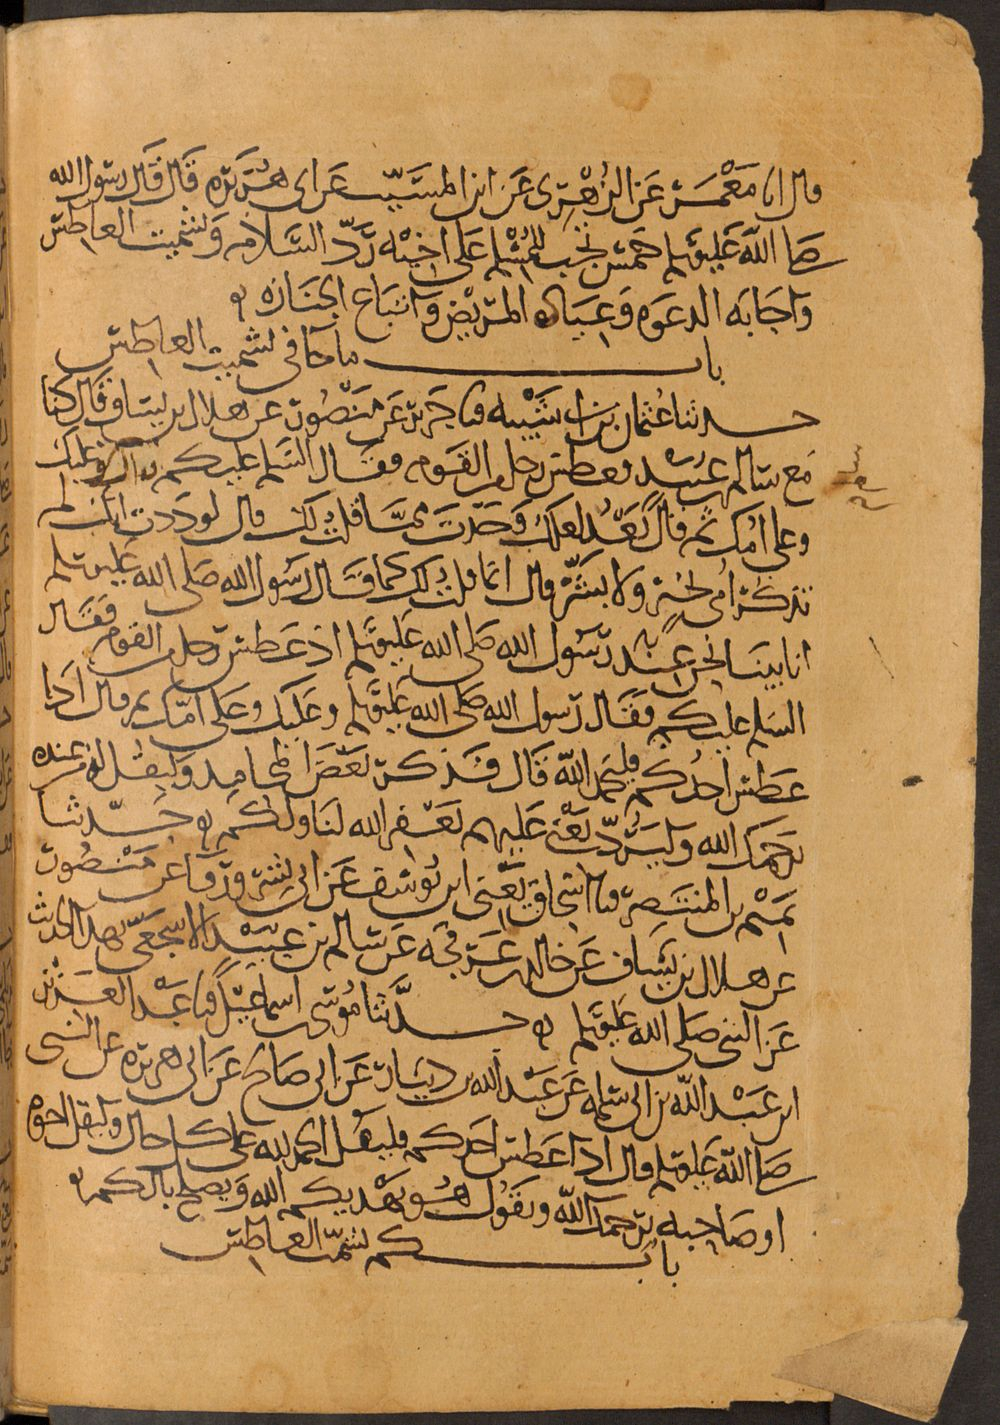 قال انا معمر عن الزهري عن ابن المسيب عن ابي هريرة قال قال رسول الله
صلى الله عليه وسلم خمس تجب للمسلم على اخيه رد السلام وتشميت العاطس
واجابة الدعوة وعيادة المريض واتباع الجنازة
باب ما جا في تشميت العاطس
حدثنا عثمان بن ابي شيبة نا جرير عن منصور عن هلال بن يساف قال كنا
مع سالم بن عبيد فعطس رجل من القوم فقال السلم عليكم فقال سالم وعليك
وعلى امك ثم قال بعد لعلك وجدت مما قلت لك قال لوددت انك لم
تذكر امي بخير ولا بشر قال انما قلت لك كما قال رسول الله صلى الله عليه وسلم
انا بينا نحن عند رسول الله صلى الله عليه وسلم اذ عطس رجل من القوم فقال
السلم عليكم فقال رسول الله صلى الله عليه وسلم وعليك وعلى امك ثم قال اذا
عطس احدكم فليحمد الله قال فذكر بعض المحامد وليقل له من عنده
يرحمك الله وليرد يعني عليهم يغفر الله لنا ولكم حدثنا
تميم بن المنتصر نا اسحاق يعني ابن يوسف عن ابي بشر ورقا عن منصور
عن هلال بن يساف عن خالد بن عرفجة عن سالم بن عبيد الاشجعي بهذا الحديث
عن النبي صلى الله عليه وسلم حدثنا موسى بن اسماعيل نا عبد العزيز
ابن عبد الله بن ابي سلمة عن عبد الله بن دينار عن ابي صالح عن ابي هريرة عن النبي
صلى الله عليه وسلم قال اذا عطس احدكم فليقل الحمد لله على كل حال وليقل اخوه
او صاحبه يرحمك الله ويقول هو يهديكم الله ويصلح بالكم
باب كم يشمت العاطس